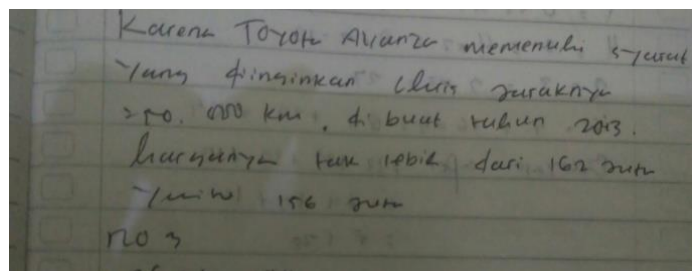 Karena Toyota Avanza memenuhi syarat
yang diinginkan Chris jaraknya
250.000 km, dibuat tahun 2013.
harganya tak lebih dari 162 juta
yaitu 156 juta
no 3